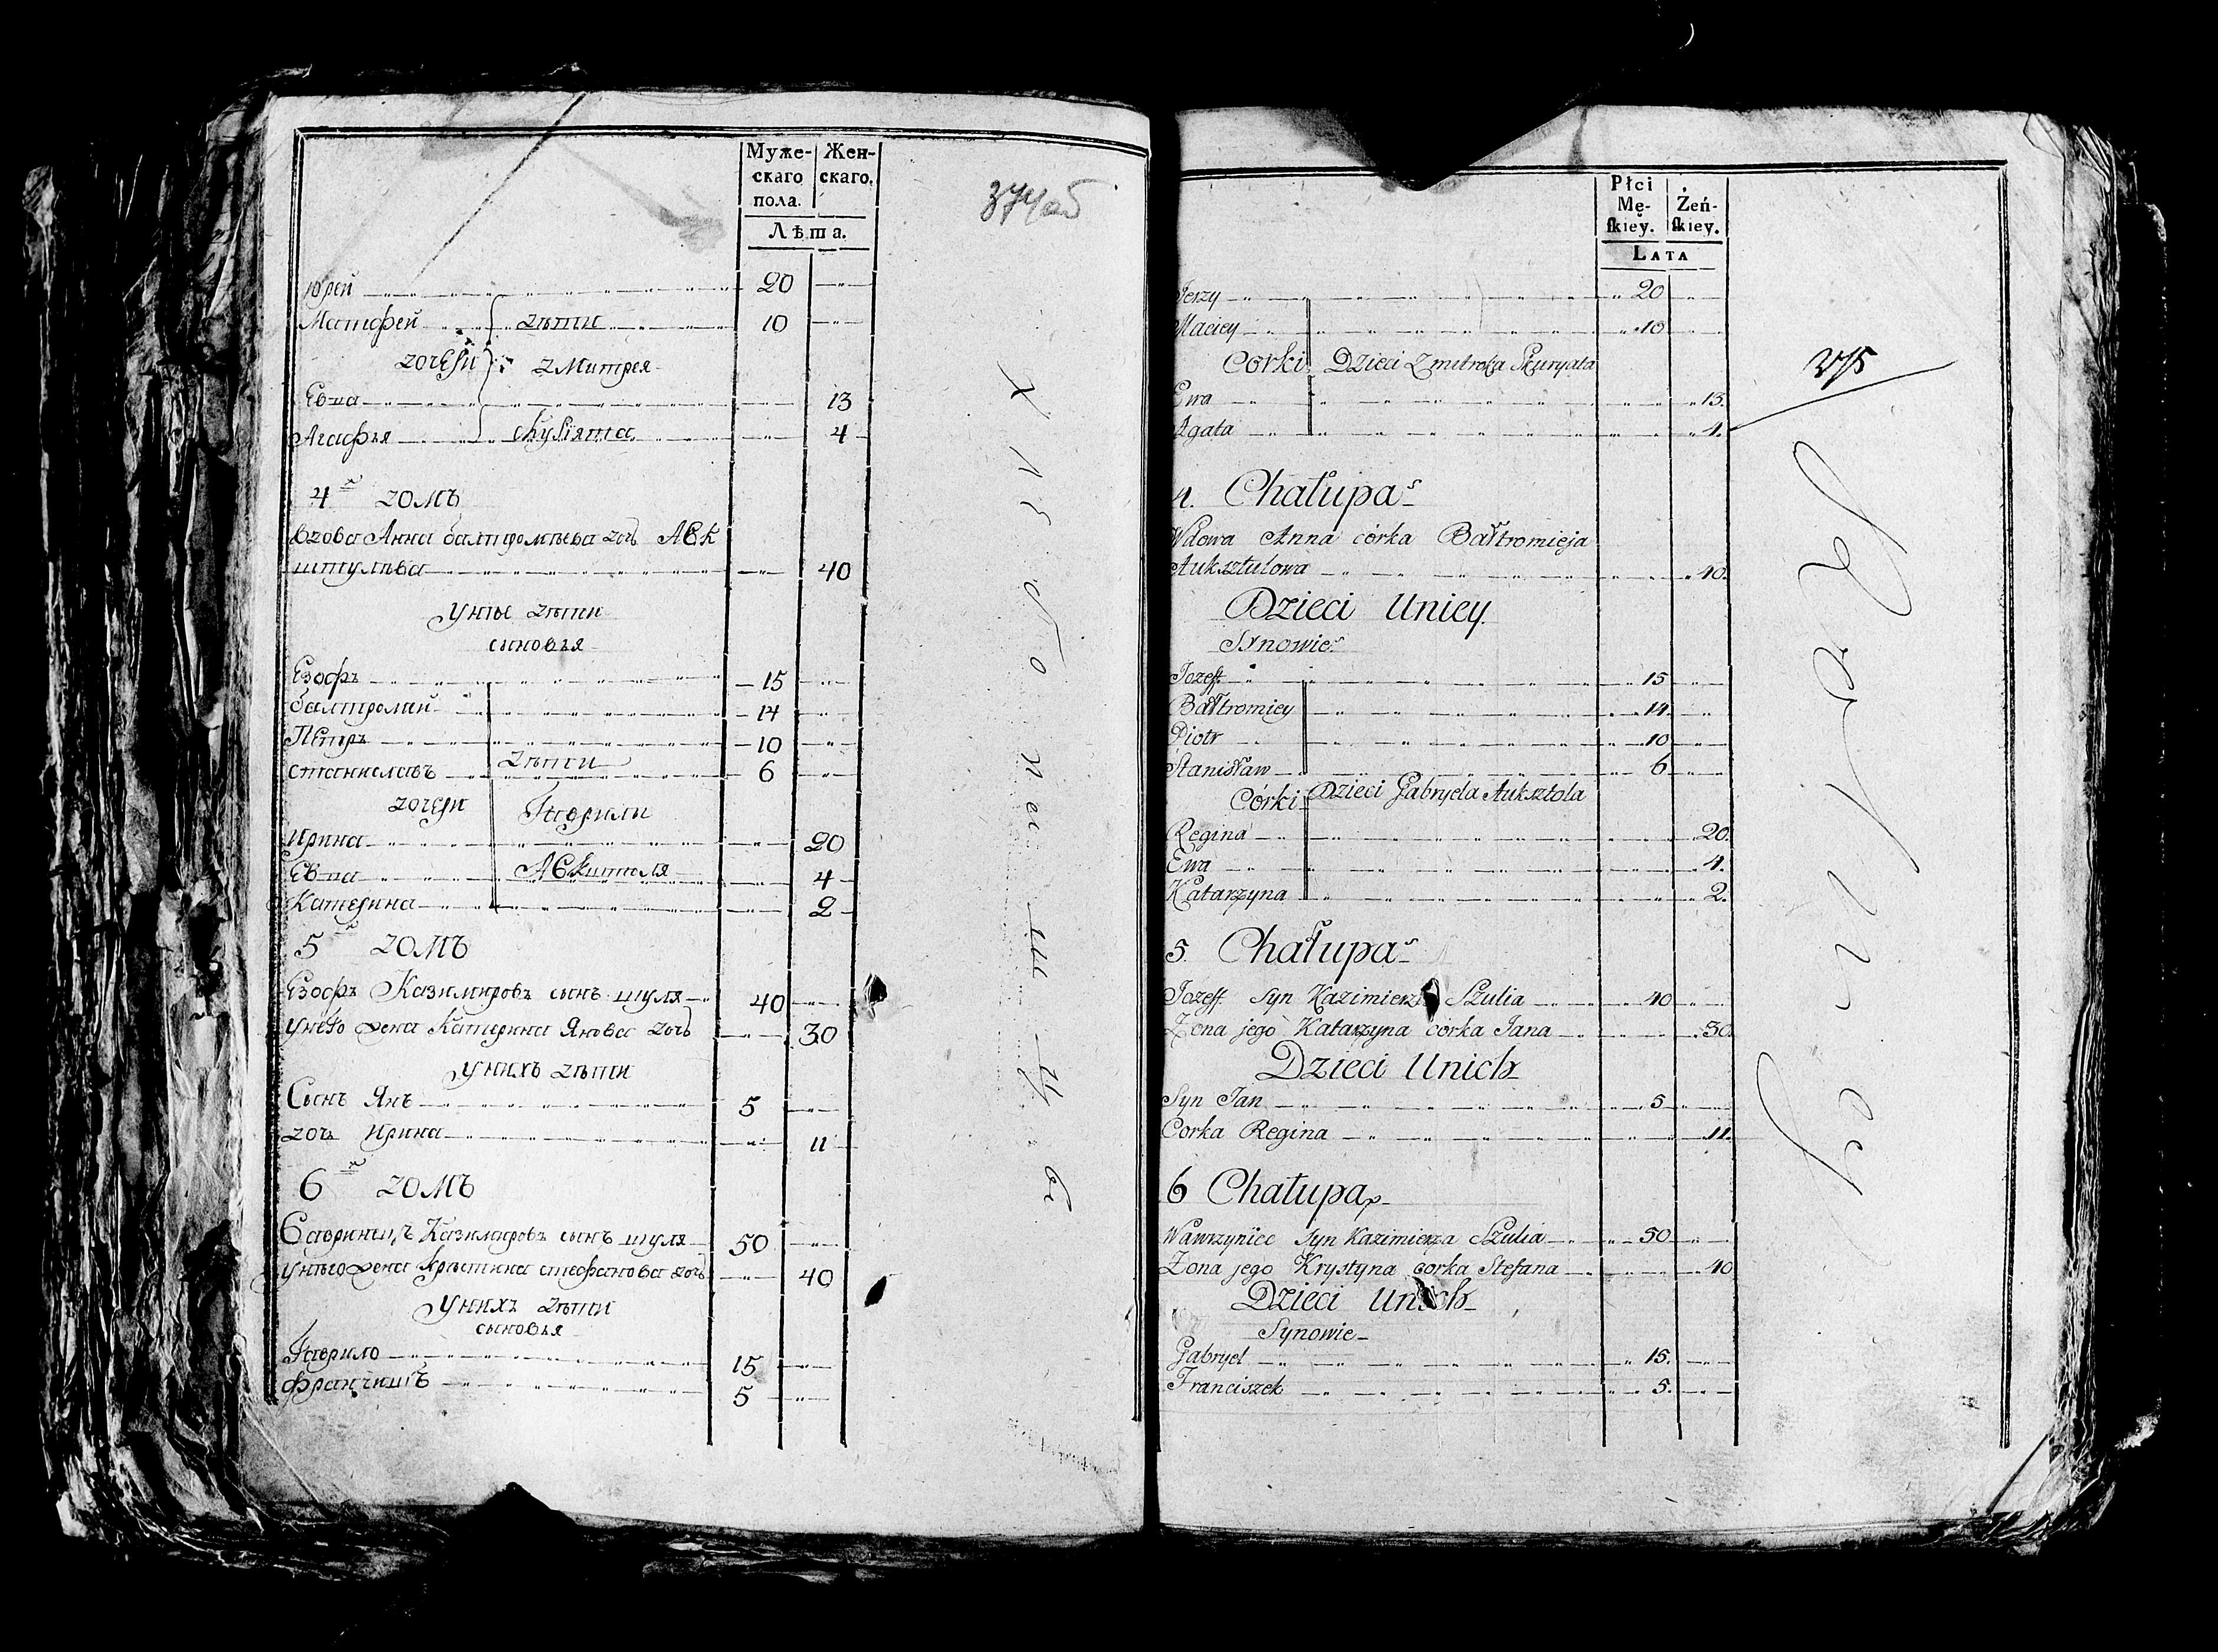 Муже- Жен-
скаго скаго.
пола.
Лѣта.
374об
Юрей 20
Матфей дѣти 10
дочери Дмитрея
Евва 13
Агафья Скурята 4
4й домъ
вдова Анна балтромѣева дочь Авк
штулева 40
у нѣе дѣти
сыновья
Езофъ 15
балтромей 14
Петръ 10
станиславъ дѣти 6
дочери Гаврили
Ирина 20
Евва Авкштоля 4
Катерина 2
5й домъ
Езофъ Казимировъ сынъ шуля 40
у него жена Катерина Янова дочь 30
у нихъ дѣти
Сынъ Янъ 5
дочь Ирина 11
6й домъ
Вавринецъ Казимировъ сынъ шуля 50
у него жена Крыстина стефанова дочь 40
у нихъ дѣти
сыновья
Гаврило 15
францишъ 5
Płci Żeń-
Mę- skiey.
skiey.
LATA
Jerzy 20
Maciey 10
Corki Dzieci Zmitroka Skuryata
375
Ewa 13.
Agata 4.
4. Chałupa
Wdowa Anna córka Bałtromieja
Auksztulowa 40.
Dzieci Uniey.
Synowie
Jozeff 15
Bałtromiey 14.
Piotr 10
Stanisław 6
Córki Dzieci Gabryela Auksztola
Regina 20.
Ewa 4.
Katarzyna 2.
5 Chałupa
Jozeff Syn Kazimierza Szulia 40
Zona jego Katarzyna córka Jana 30
Dzieci Unich
Syn Jan 5
Corka Regina 11.
6 Chałupa
Wawrzyniec Syn Kazimierza Szulia 50
Zona jego Krystyna corka Stefana 40
Dzieci Unich
Synowie
Gabryel 15.
Franciszek 5.